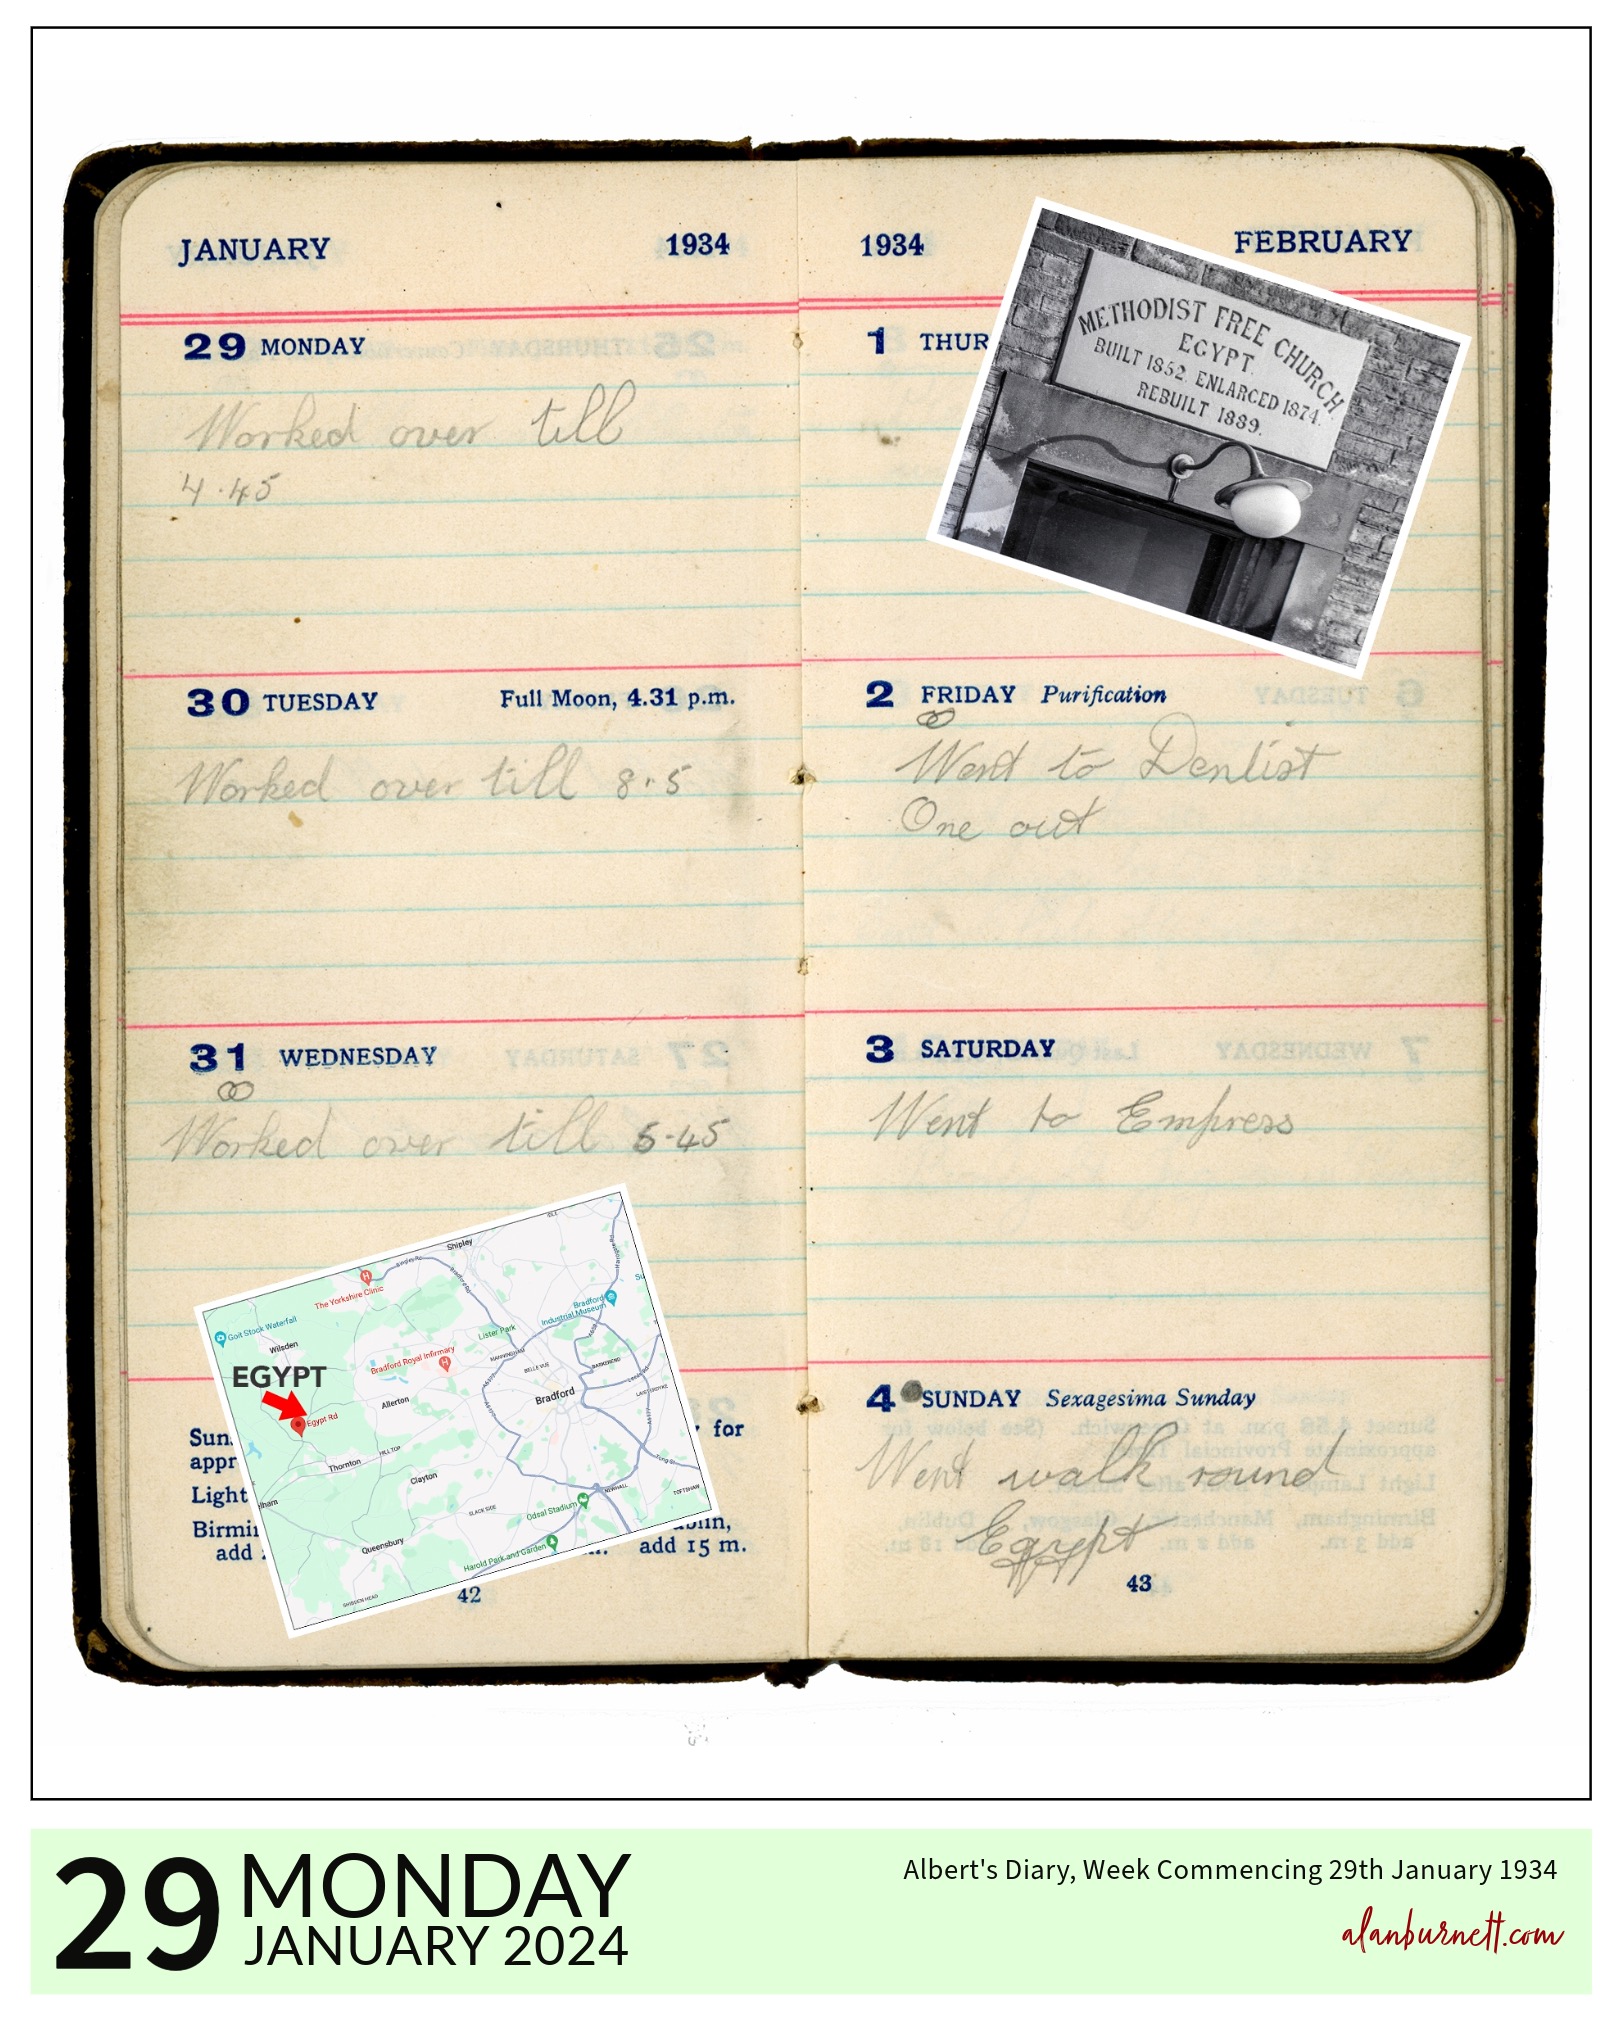 JANUARY 1934
29 MONDAY
Worked over till
4.45
30 TUESDAY Full Moon, 4.31 p.m.
Worked over till 8.5
31 WEDNESDAY
Worked over till 5.45
Shipley
IDLE
The Yorkshire Clinic
Goit Stock Waterfall
Wilsden
Bradford Industrial Museum
Lister Park
MANNINGHAM
Bradford Royal Infirmary
BELLE VUE
BARKEREND
EGYPT
Allerton
Bradford
LAISTERDYKE
Egypt Rd
HILL TOP
Thornton
Clayton
BLACK SIDE
NEWHALL
TOFTSHAW
Odsal Stadium
Queensbury
Harold Park and Garden
SHIBDEN HEAD
for
appr
Light
Birmi
add add 15 m.
42
1934 FEBRUARY
1 THUR
METHODIST FREE CHURCH
EGYPT
BUILT 1852. ENLARGED 1874.
REBUILT 1889.
2 FRIDAY Purification
Went to Dentist
One out
3 SATURDAY
Went to Empress
4 SUNDAY Sexagesima Sunday
Went walk round
Egypt
43
29 MONDAY
JANUARY 2024
Albert's Diary, Week Commencing 29th January 1934
alanburnett.com